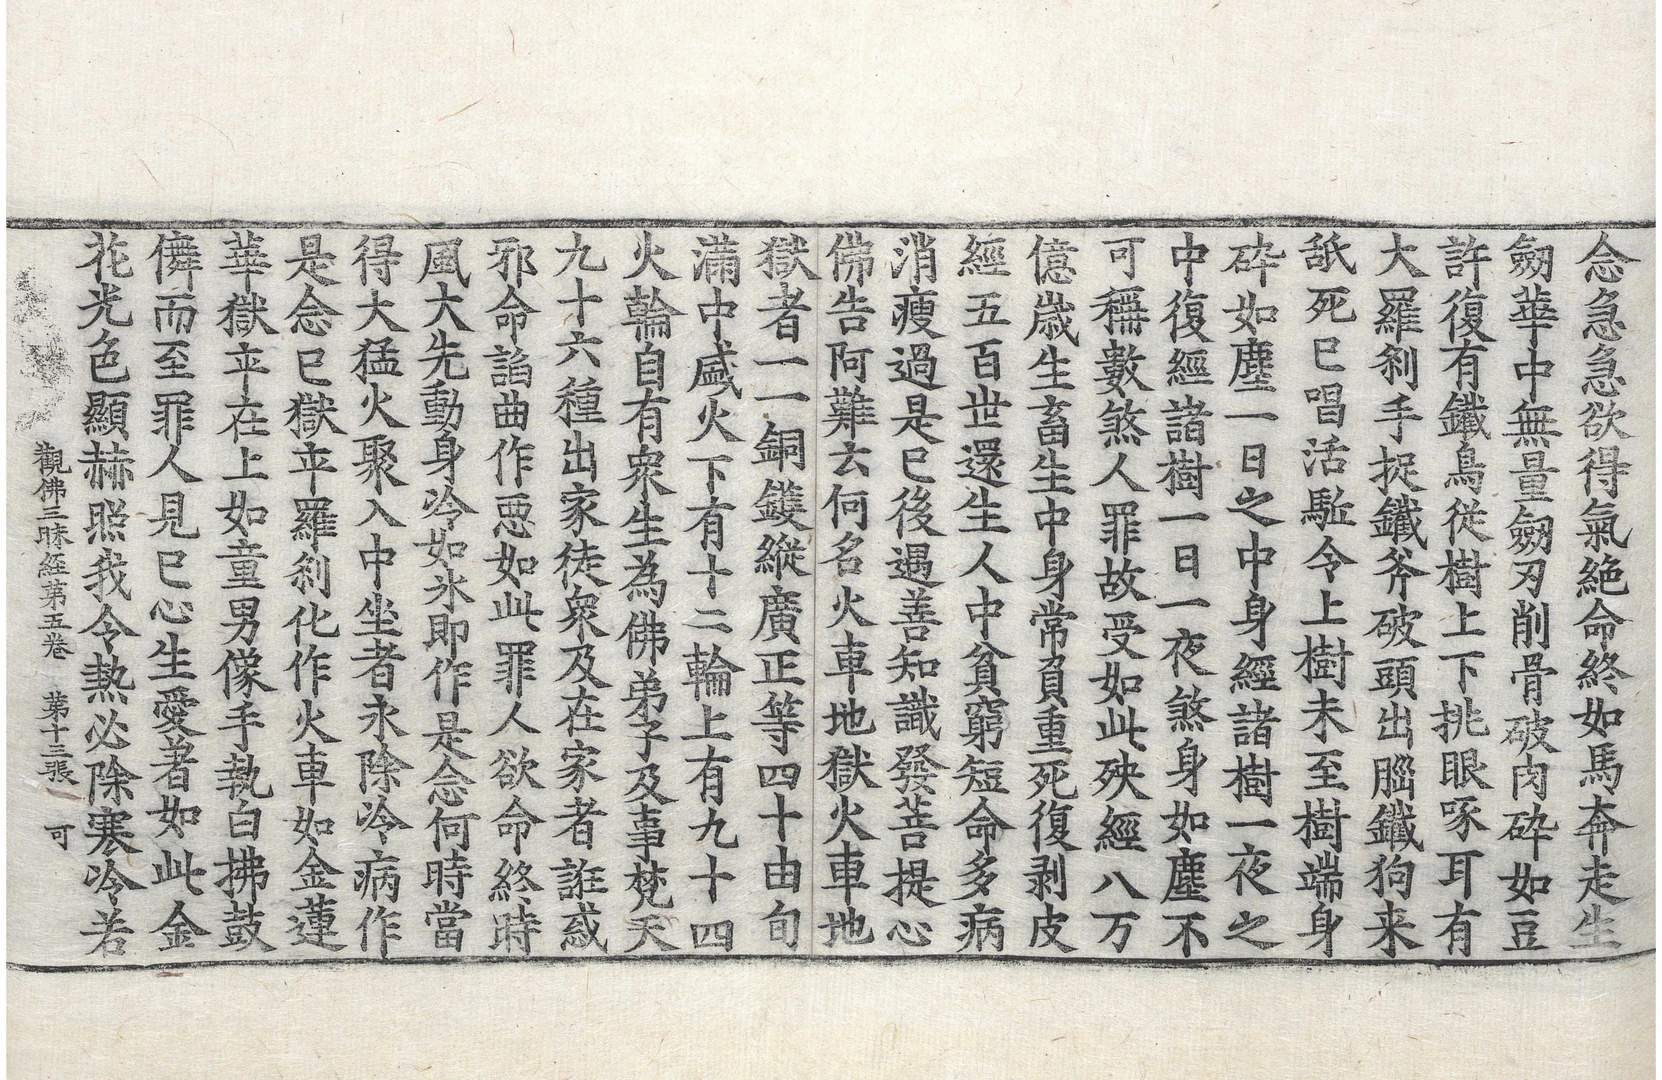 念急急欲得氣絶命終如馬奔走生
劒華中無量劒刃削骨破肉碎如豆
許復有鐵鳥從樹上下挑眼啄耳有
大羅刹手捉鐵斧破頭出腦鐵狗来
舐死已唱活駈令上樹未至樹端身
碎如塵一日之中身經諸樹一夜之
中復經諸樹一日一夜煞身如塵不
可稱數煞人罪故受如此殃經八万
億歲生畜生中身常負重死復剥皮
經五百世還生人中貧窮短命多病
消瘦過是已後遇善知識發菩提心
佛告阿難云何名火車地獄火車地
獄者一一銅鑊縱廣正等四十由旬
滿中盛火下有十二輪上有九十四
火輪自有衆生為佛弟子及事梵天
九十六種出家徒衆及在家者誑惑
邪命諂曲作惡如此罪人欲命終時
風大先動身冷如氷即作是念何時當
得大猛火聚入中坐者永除冷病作
是念已獄卒羅刹化作火車如金蓮
華獄卒在上如童男像手執白拂鼓
儛而至罪人見已心生愛著如此金
花光色顯赫照我令熱必除寒冷若
觀佛三昧經第五卷　第十三張　可